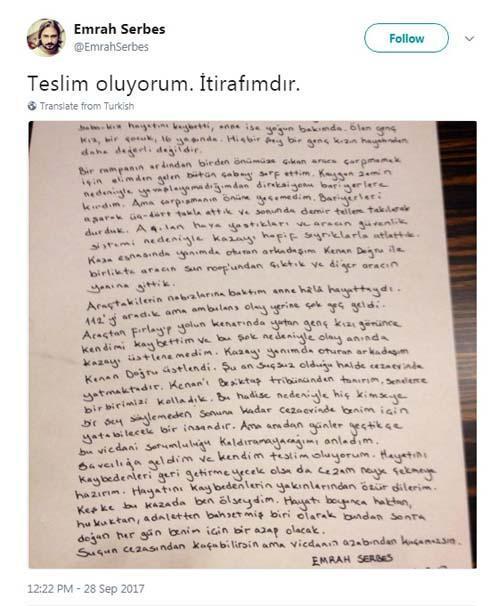 Emrah Serbes
@EmrahSerbes
Follow
Teslim oluyorum. İtirafımdır.
Translate from Turkish
baba-kız hayatını kaybetti, anne ise yoğun bakımda. Ölen genç
kız, bir çocuk, 16 yaşında. Hiçbir şey bir genç kızın hayatından
daha değerli değildir.
Bir rampanın ardından birden önümüze çıkan araca çarpmamak
için elimden gelen bütün çabayı sarf ettim. Kaygan zemin
nedeniyle yavaşlayamadığımdan direksiyonu bariyerlere
kırdım. Ama çarpışmanın önüne geçemedim. Bariyerleri
aşarak üç-dört takla attık ve sonunda demir tellere takılarak
durduk. Açılan hava yastıkları ve aracın güvenlik
sistemi nedeniyle kazayı hafif sıyrıklarla atlattık.
Kaza esnasında yanımda oturan arkadaşım Kenan Doğru ile
birlikte aracın sun roof'undan çıktık ve diğer aracın
yanına gittik.
Araçtakilerin nabızlarına baktım anne hâlâ hayattaydı.
112'yi aradık ama ambulans olay yerine çok geç geldi.
Araçtan fırlayıp yolun kenarında yatan genç kızı görünce
kendimi kaybettim ve bu şok nedeniyle olay anında
kazayı üstlenemedim. Kazayı yanımda oturan arkadaşım
Kenan Doğru üstlendi. Şu an suçsuz olduğu halde cezaevinde
yatmaktadır. Kenan'ı Beşiktaş tribününden tanırım, senelerce
birbirimizi kolladık. Bu hadise nedeniyle hiç kimseye
bir şey söylemeden sonuna kadar cezaevinde benim için
yatabilecek bir insandır. Ama aradan günler geçtikçe
bu vicdani sorumluluğu kaldıramayacağımı anladım.
Savcılığa geldim ve kendim teslim oluyorum. Hayatını
kaybedenleri geri getirmeyecek olsa da cezam neyse çekmeye
hazırım. Hayatını kaybedenlerin yakınlarından özür dilerim.
Keşke bu kazada ben ölseydim. Hayatı boyunca haktan,
hukuktan, adaletten bahsetmiş biri olarak bundan sonra
doğan her gün benim için bir azap olacak.
Suçun cezasından kaçabilirsin ama vicdanın azabından kaçamazsın.
EMRAH SERBES
12:22 PM - 28 Sep 2017